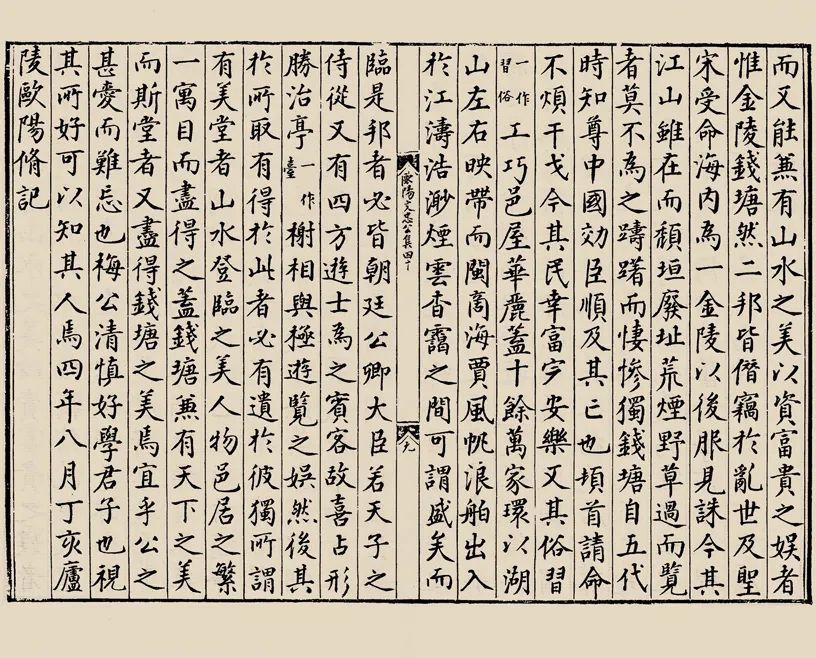 而又能兼有山水之美以資富貴之娛者
惟金陵錢塘然二邦皆僭竊於亂世及聖
宋受命海内為一金陵以後服見誅今其
江山雖在而頹垣廢址荒煙野草過而覽
者莫不為之躊躇而悽慘獨錢塘自五代
時知尊中國効臣順及其亡也頓首請命
不煩干戈今其民幸富完安樂又其俗習
一作習俗工巧邑屋華麗蓋十餘萬家環以湖
山左右映帶而閩商海賈風帆浪舶出入
於江濤浩渺煙雲杳靄之間可謂盛矣而
歐陽文忠公集四十 九
臨是邦者必皆朝廷公卿大臣若天子之
侍從又有四方遊士為之賓客故喜占形
勝治亭一作臺榭相與極遊覽之娛然後其
於所取有得於此者必有遺於彼獨所謂
有美堂者山水登臨之美人物邑居之繁
一寓目而盡得之蓋錢塘兼有天下之美
而斯堂者又盡得錢塘之美焉宜乎公之
甚愛而難忘也梅公清慎好學君子也視
其所好可以知其人焉四年八月丁亥廬
陵歐陽脩記